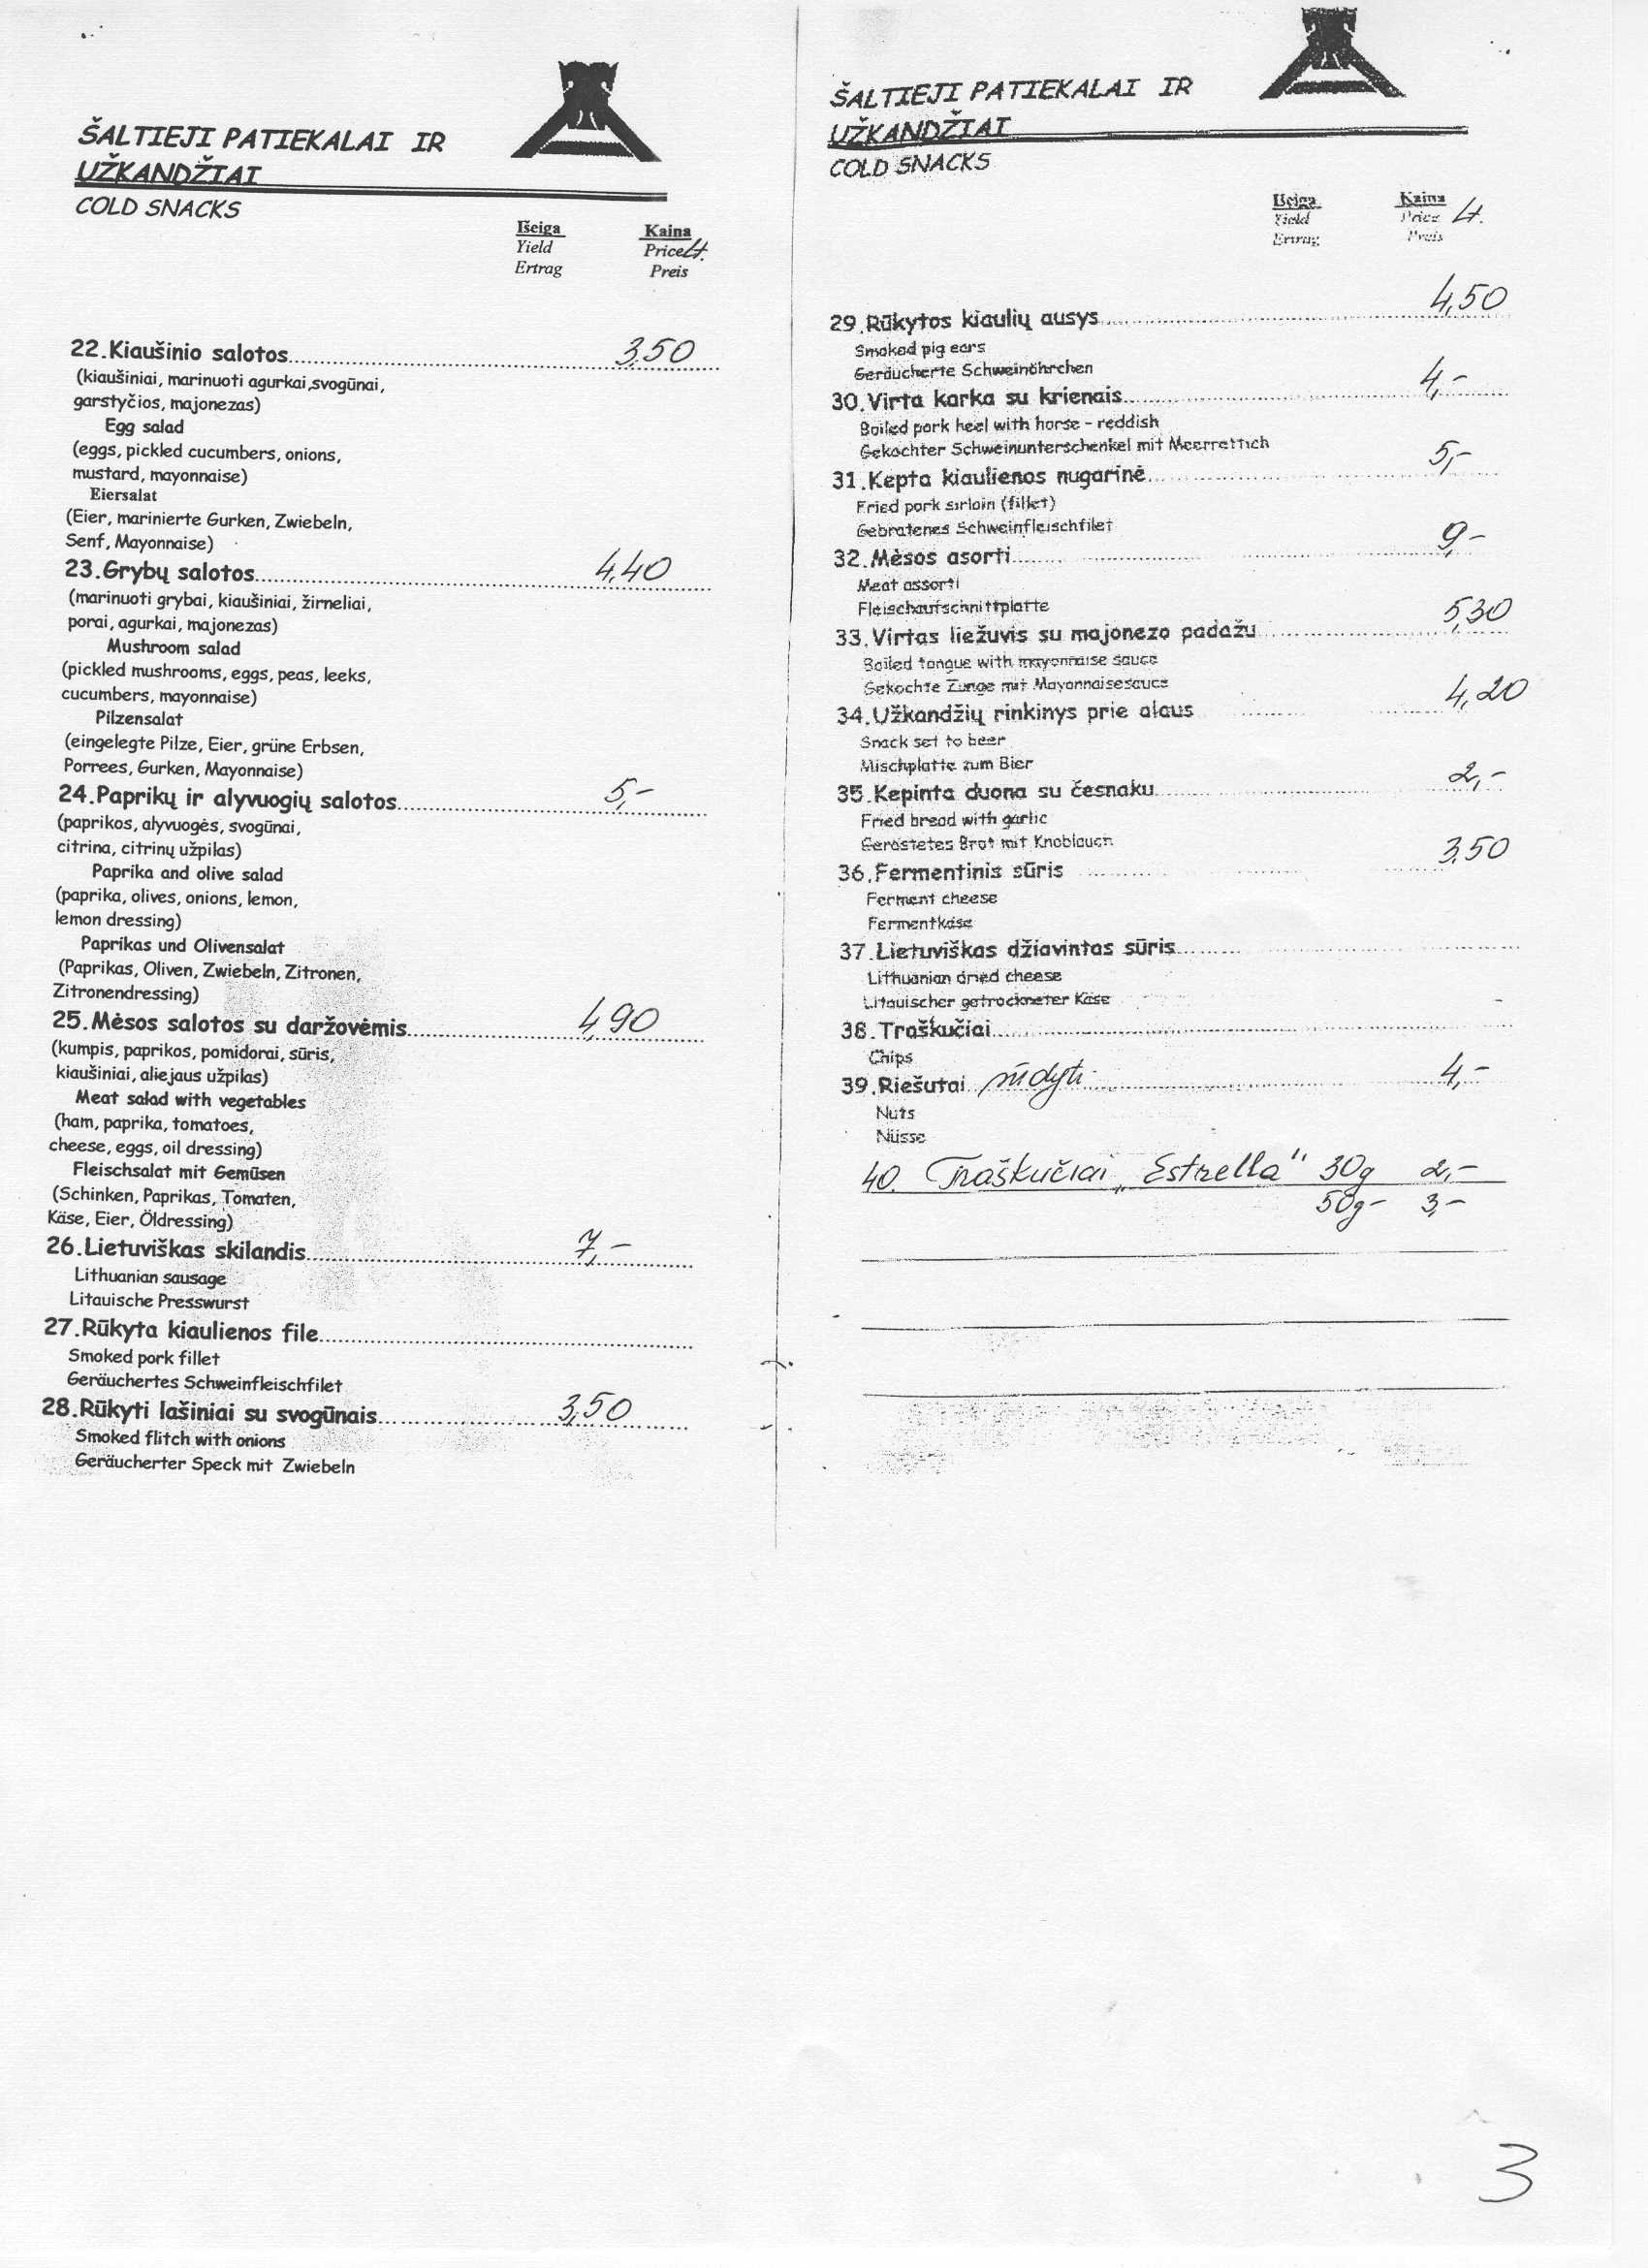 ŠALTIEJI PATIEKALAI IR
UŽKANDŽIAI
COLD SNACKS
Išeiga Kaina
Yield Price Lt.
Ertrag Preis
22.Kiaušinio salotos 3,50
(kiaušiniai, marinuoti agurkai,svogūnai,
garstyčios, majonezas)
Egg salad
(eggs, pickled cucumbers, onions,
mustard, mayonnaise)
Eiersalat
(Eier, marinierte Gurken, Zwiebeln,
Senf, Mayonnaise)
23.Grybų salotos 4,40
(marinuoti grybai, kiaušiniai, žirneliai,
porai, agurkai, majonezas)
Mushroom salad
(pickled mushrooms, eggs, peas, leeks,
cucumbers, mayonnaise)
Pilzensalat
(eingelegte Pilze, Eier, grüne Erbsen,
Porrees, Gurken, Mayonnaise)
24.Paprikų ir alyvuogių salotos 5,-
(paprikos, alyvuogės, svogūnai,
citrina, citrinų užpilas)
Paprika and olive salad
(paprika, olives, onions, lemon,
lemon dressing)
Paprikas und Olivensalat
(Paprikas, Oliven, Zwiebeln, Zitronen,
Zitronendressing)
25.Mėsos salotos su daržovėmis 4,90
(kumpis, paprikos, pomidorai, sūris,
kiaušiniai, aliejaus užpilas)
Meat salad with vegetables
(ham, paprika, tomatoes,
cheese, eggs, oil dressing)
Fleischsalat mit Gemüsen
(Schinken, Paprikas, Tomaten,
Käse, Eier, Öldressing)
26.Lietuviškas skilandis 7,-
Lithuanian sausage
Litauische Presswurst
27.Rūkyta kiaulienos file
Smoked pork fillet
Geräuchertes Schweinfleischfilet
28.Rūkyti lašiniai su svogūnais 3,50
Smoked flitch with onions
Geräucherter Speck mit Zwiebeln
ŠALTIEJI PATIEKALAI IR
UŽKANDŽIAI
COLD SNACKS
Išeiga Kaina
Yield Price Lt.
Ertrag Preis
29.Rūkytos kiaulių ausys 4,50
Smoked pig ears
Geräucherte Schweinöhrchen
30.Virta karka su krienais 4,-
Boiled pork heel with horse - reddish
Gekochter Schweinunterschenkel mit Meerrettich
31.Kepta kiaulienos nugarinė 5,-
Fried pork sirloin (fillet)
Gebratenes Schweinfleischfilet
32.Mėsos asorti 9,-
Meat assorti
Fleischaufschnittplatte
33.Virtas liežuvis su majonezo padažu 5,30
Boiled tongue with mayonnaise sauce
Gekochte Zunge mit Mayonnaisesauce
34.Užkandžių rinkinys prie alaus 4,20
Snack set to beer
Mischplatte zum Bier
35.Kepinta duona su česnaku 2,-
Fried bread with garlic
Geröstetes Brot mit Knoblauch
36.Fermentinis sūris 3,50
Ferment cheese
Fermentkäse
37.Lietuviškas džiavintas sūris
Lithuanian dried cheese
Litauischer getrockneter Käse
38.Traškučiai
Chips
39.Riešutai sūdyti 4,-
Nuts
Nüsse
40. Traškučiai „Estrella“ 30g 2,-
50g- 3,-
3